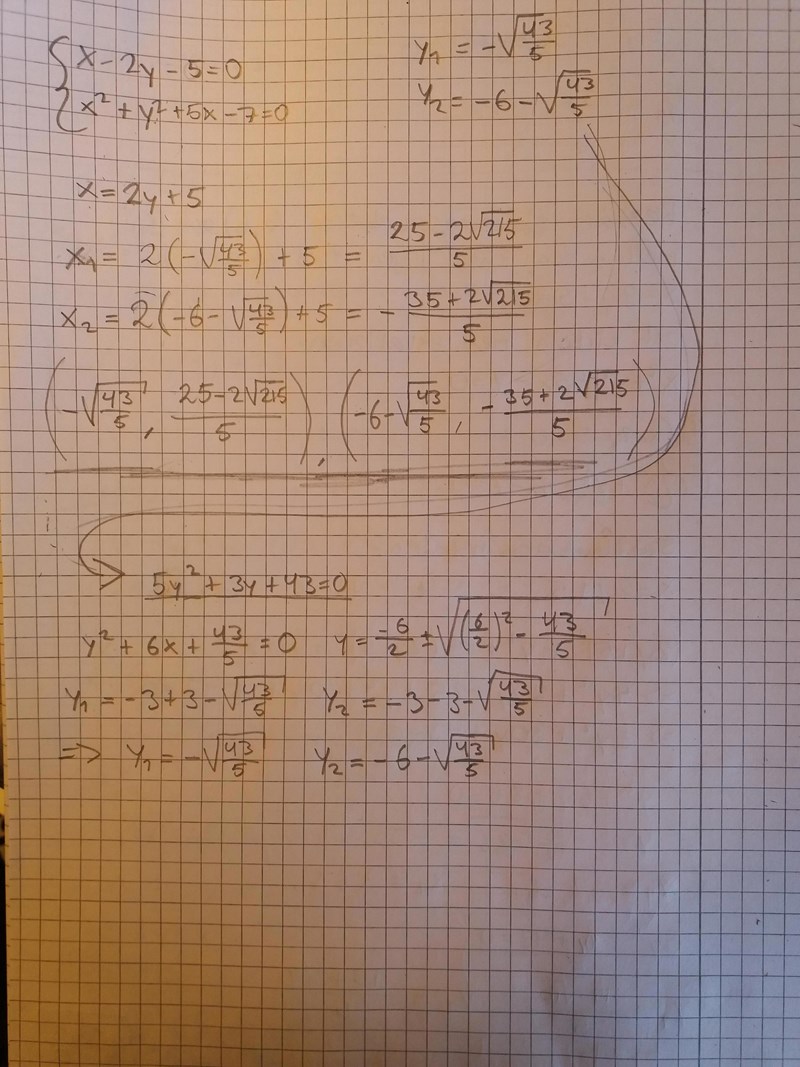 x - 2y - 5 = 0
x² + y² + 5x - 7 = 0
y₁ = -√(43/5)
y₂ = -6 - √(43/5)
x = 2y + 5
x₁ = 2(-√(43/5)) + 5 = (25 - 2√215)/5
x₂ = 2(-6 - √(43/5)) + 5 = - (35 + 2√215)/5
(-√(43/5), (25 - 2√215)/5), (-6 - √(43/5), - (35 + 2√215)/5)
5y² + 3y + 43 = 0
y² + 6x + 43/5 = 0 y = -6/2 ± √((6/2)² - 43/5)
y₁ = -3 + 3 - √(43/5) y₂ = -3 - 3 - √(43/5)
=> y₁ = -√(43/5) y₂ = -6 - √(43/5)